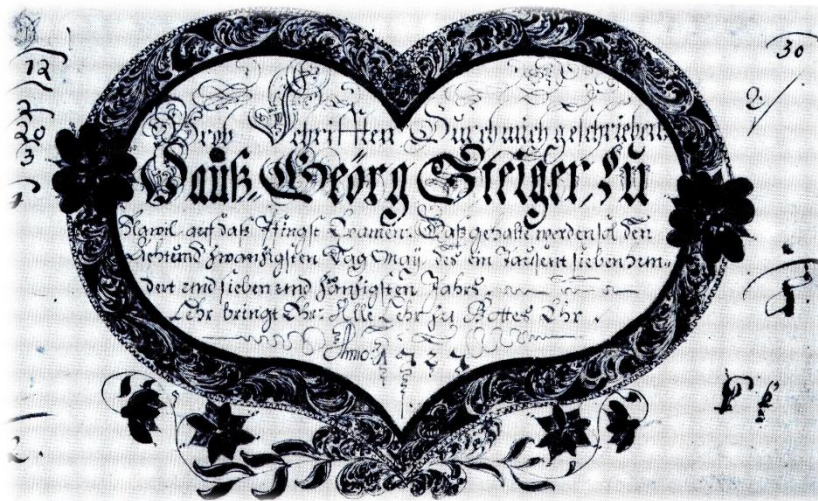 Prob Schrifften Durch mich geschrieben
Hanß Geörg Steiger, zu
auf daß Pfingst Examen. Daß gehalte werden sol den
Achtund zwanzigsten Tag May. des ein Tausent sieben hun-
dert und sieben und Jahrs.
Lehr bringt Ehr: Alle Lehr zu Gottes Ehr.
Anno: 1727
12
20
3
30
2